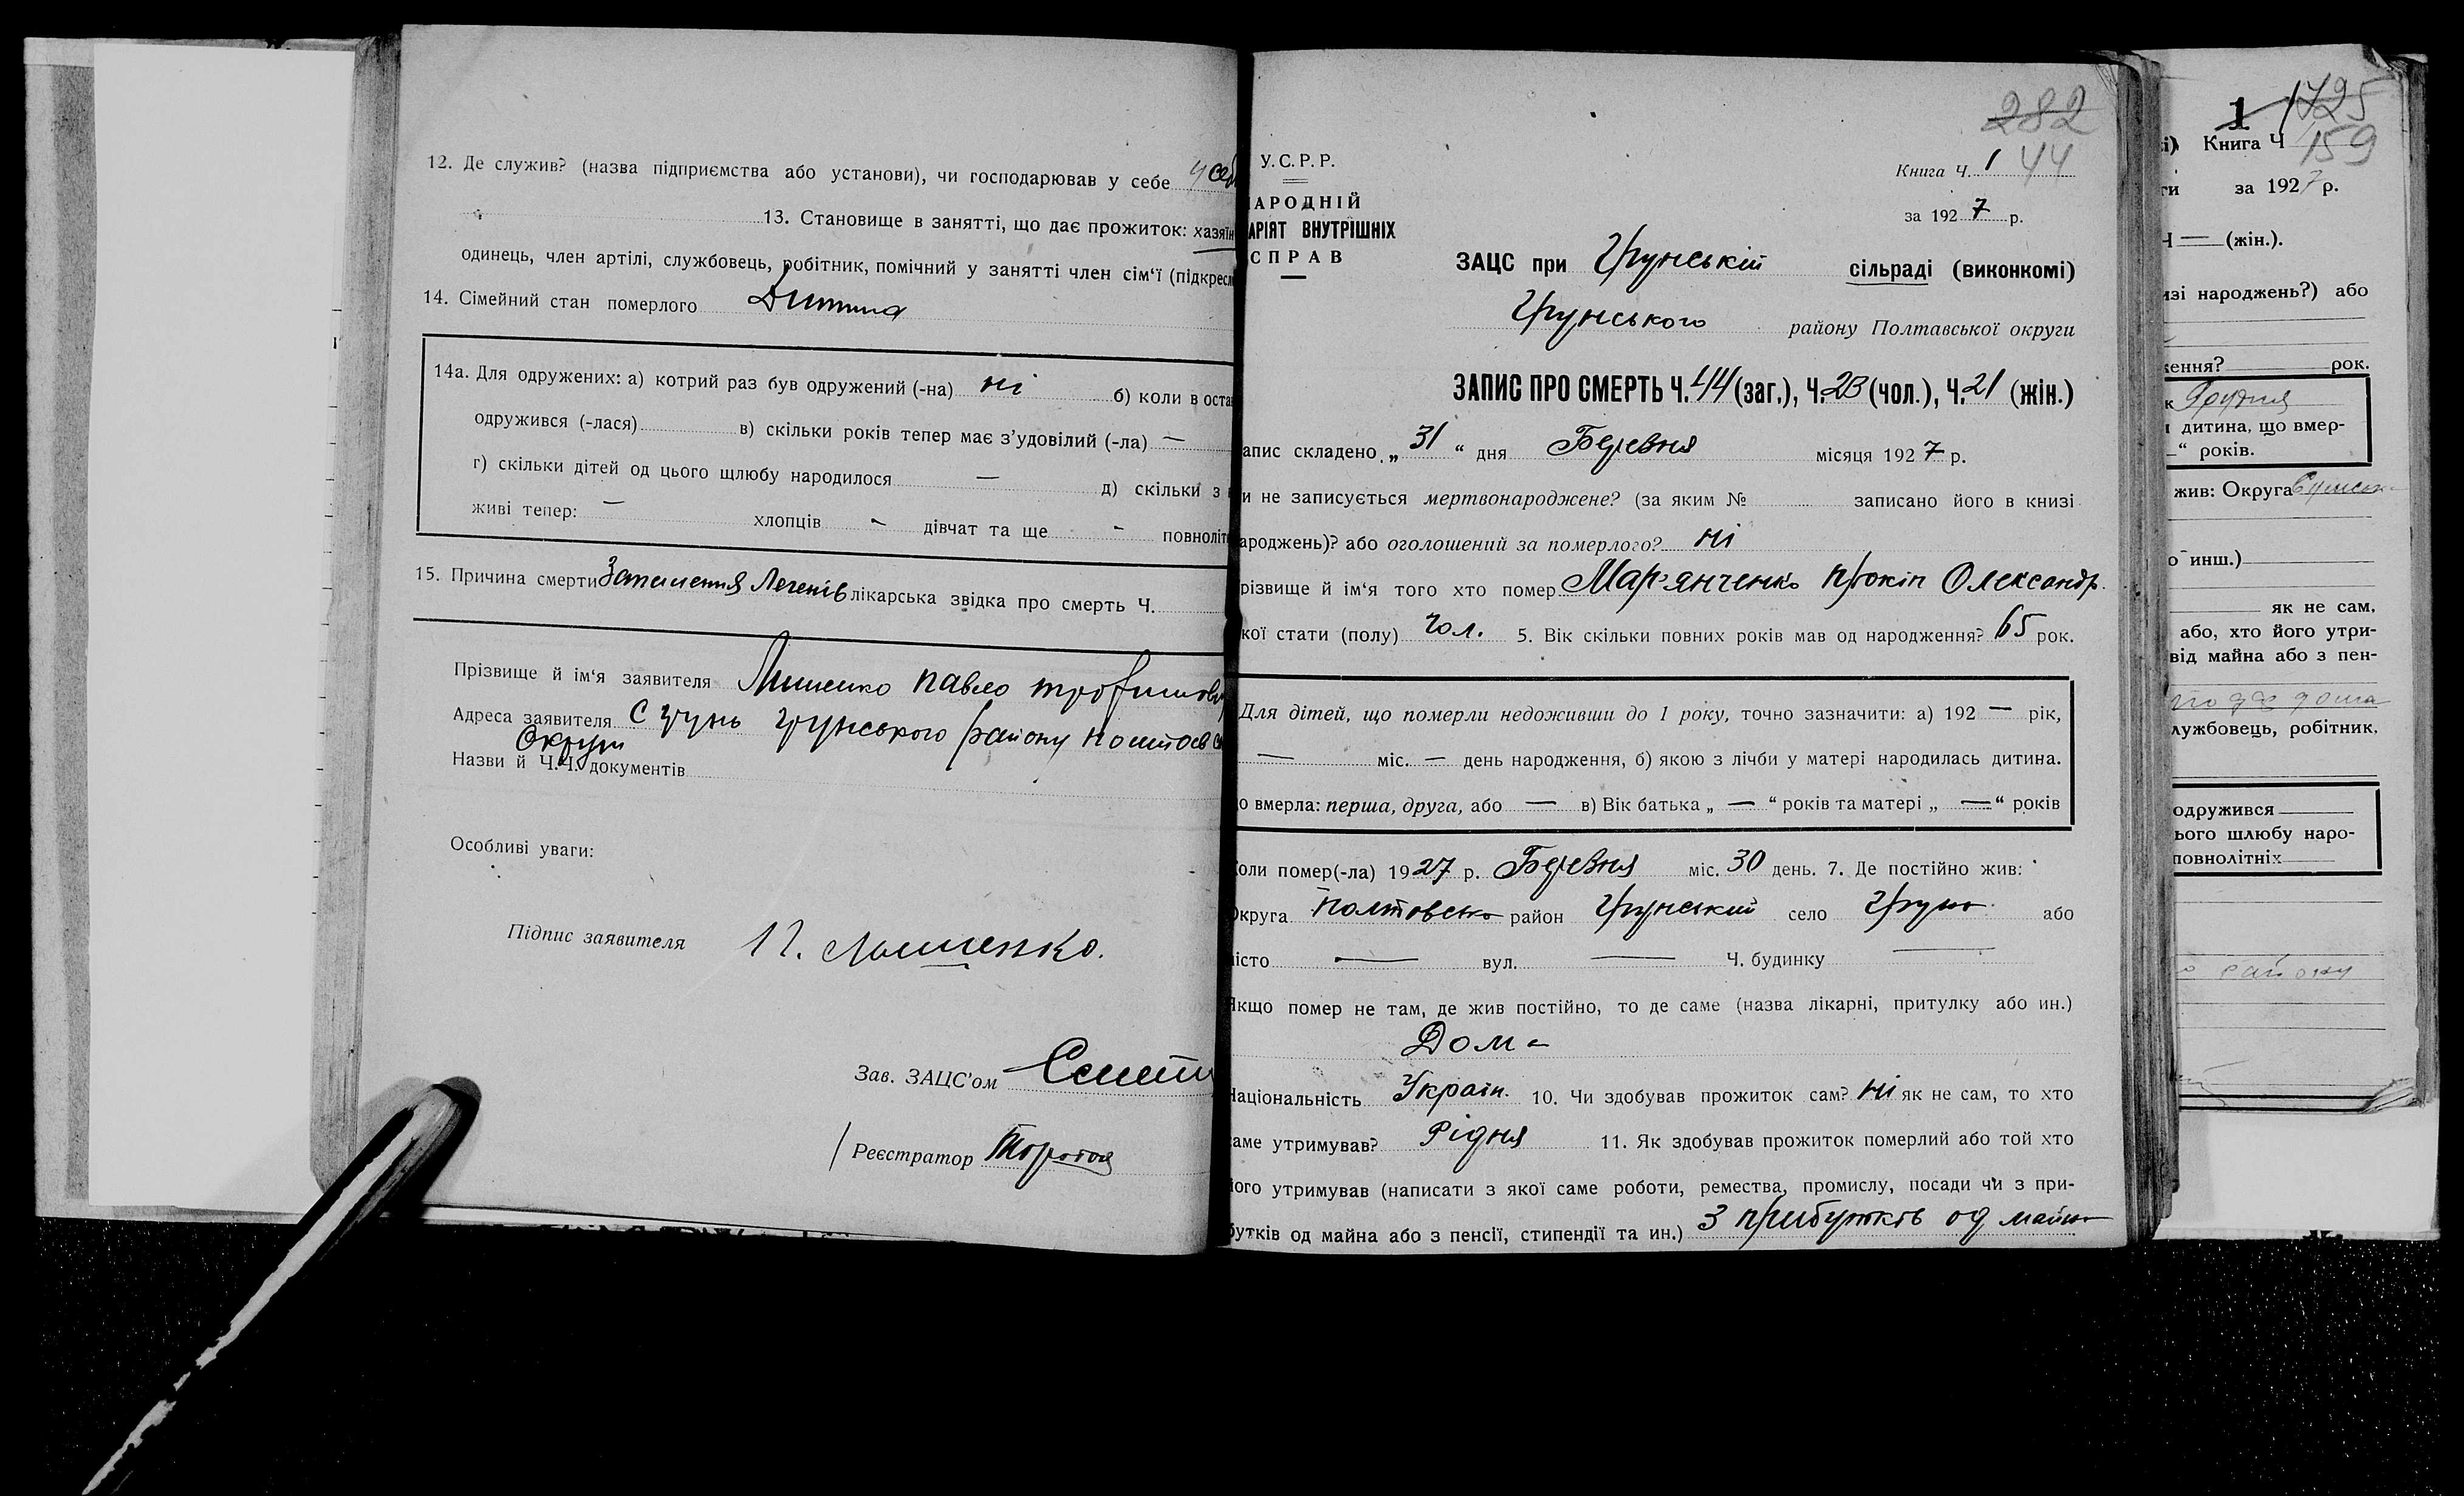 12. Де служив? (назва підприємства або установи), чи господарював у себе у себ
13. Становище в занятті, що дає прожиток: хазяїн
одинець, член артілі, службовець, робітник, помічний у занятті член сім'ї (підкресл
14. Сімейний стан померлого Дитина
14а. Для одружених: а) котрий раз був одружений (-на) ні б) коли в оста
одружився (-лася) в) скільки років тепер має з'удовілий (-ла) —
г) скільки дітей од цього щлюбу народилося — д) скільки з
живі тепер: — хлопців - дівчат та ще - повноліт
15. Причина смерти Запалення Легенів лікарська звідка про смерть Ч.
Прізвище й ім'я заявителя Лишенко Павло Трофимов
Адреса заявителя с Грунь Грунського району Полтавс
Округи
Назви й Ч.Ч. документів
Особливі уваги:
Підпис заявителя П. Лишенко.
Зав. ЗАЦС'ом
Реєстратор
282
У.С.Р.Р.
АРОДНІЙ
АРІЯТ ВНУТРІШНІХ
СПРАВ
Книга Ч. 1 44
за 1927 р.
ЗАЦС при Грунській сільраді (виконкомі)
Грунського району Полтавської округи
ЗАПИС ПРО СМЕРТЬ Ч. 44 (заг.), Ч. 23 (чол.), Ч. 21 (жін.)
апис складено „ 31 “ дня Березня місяця 1927 р.
и не записується мертвонароджене? (за яким № записано його в книзі
ароджень)? або оголошений за померлого? ні
різвище й ім'я того хто помер Мар'янченко Прокіп Олександр.
кої стати (полу) Чол. 5. Вік скільки повних років мав од народження? 65 рок.
Для дітей, що померли недоживши до 1 року, точно зазначити: а) 192 — рік,
— міс. — день народження, б) якою з лічби у матері народилась дитина.
о вмерла: перша, друга, або — в) Вік батька „ — “ років та матері „ — “ років
оли помер(-ла) 1927 р. Березня міс. 30 день. 7. Де постійно жив:
округа Полтавська район Грунський село Грунь або
місто — вул. — Ч. будинку —
Якщо помер не там, де жив постійно, то де саме (назва лікарні, притулку або ин.)
Дома
Національність Україн. 10. Чи здобував прожиток сам? ні як не сам, то хто
саме утримував? Рідня 11. Як здобував прожиток померлий або той хто
його утримував (написати з якої саме роботи, ремества, промислу, посади чи з при-
бутків од майна або з пенсії, стипендії та ин.) З прибутків од майна
1 1725
і) Книга Ч 159
ти за 1927 р.
Ч — (жін.).
изі народжень?) або
ження? рок.
к Грудня
и дитина, що вмер-
“ років.
жив: Округа Сумськ
о инш.)
як не сам,
або, хто його утри-
від майна або з пен-
лужбовець, робітник,
одружився
ього шлюбу наро-
повнолітніх
району